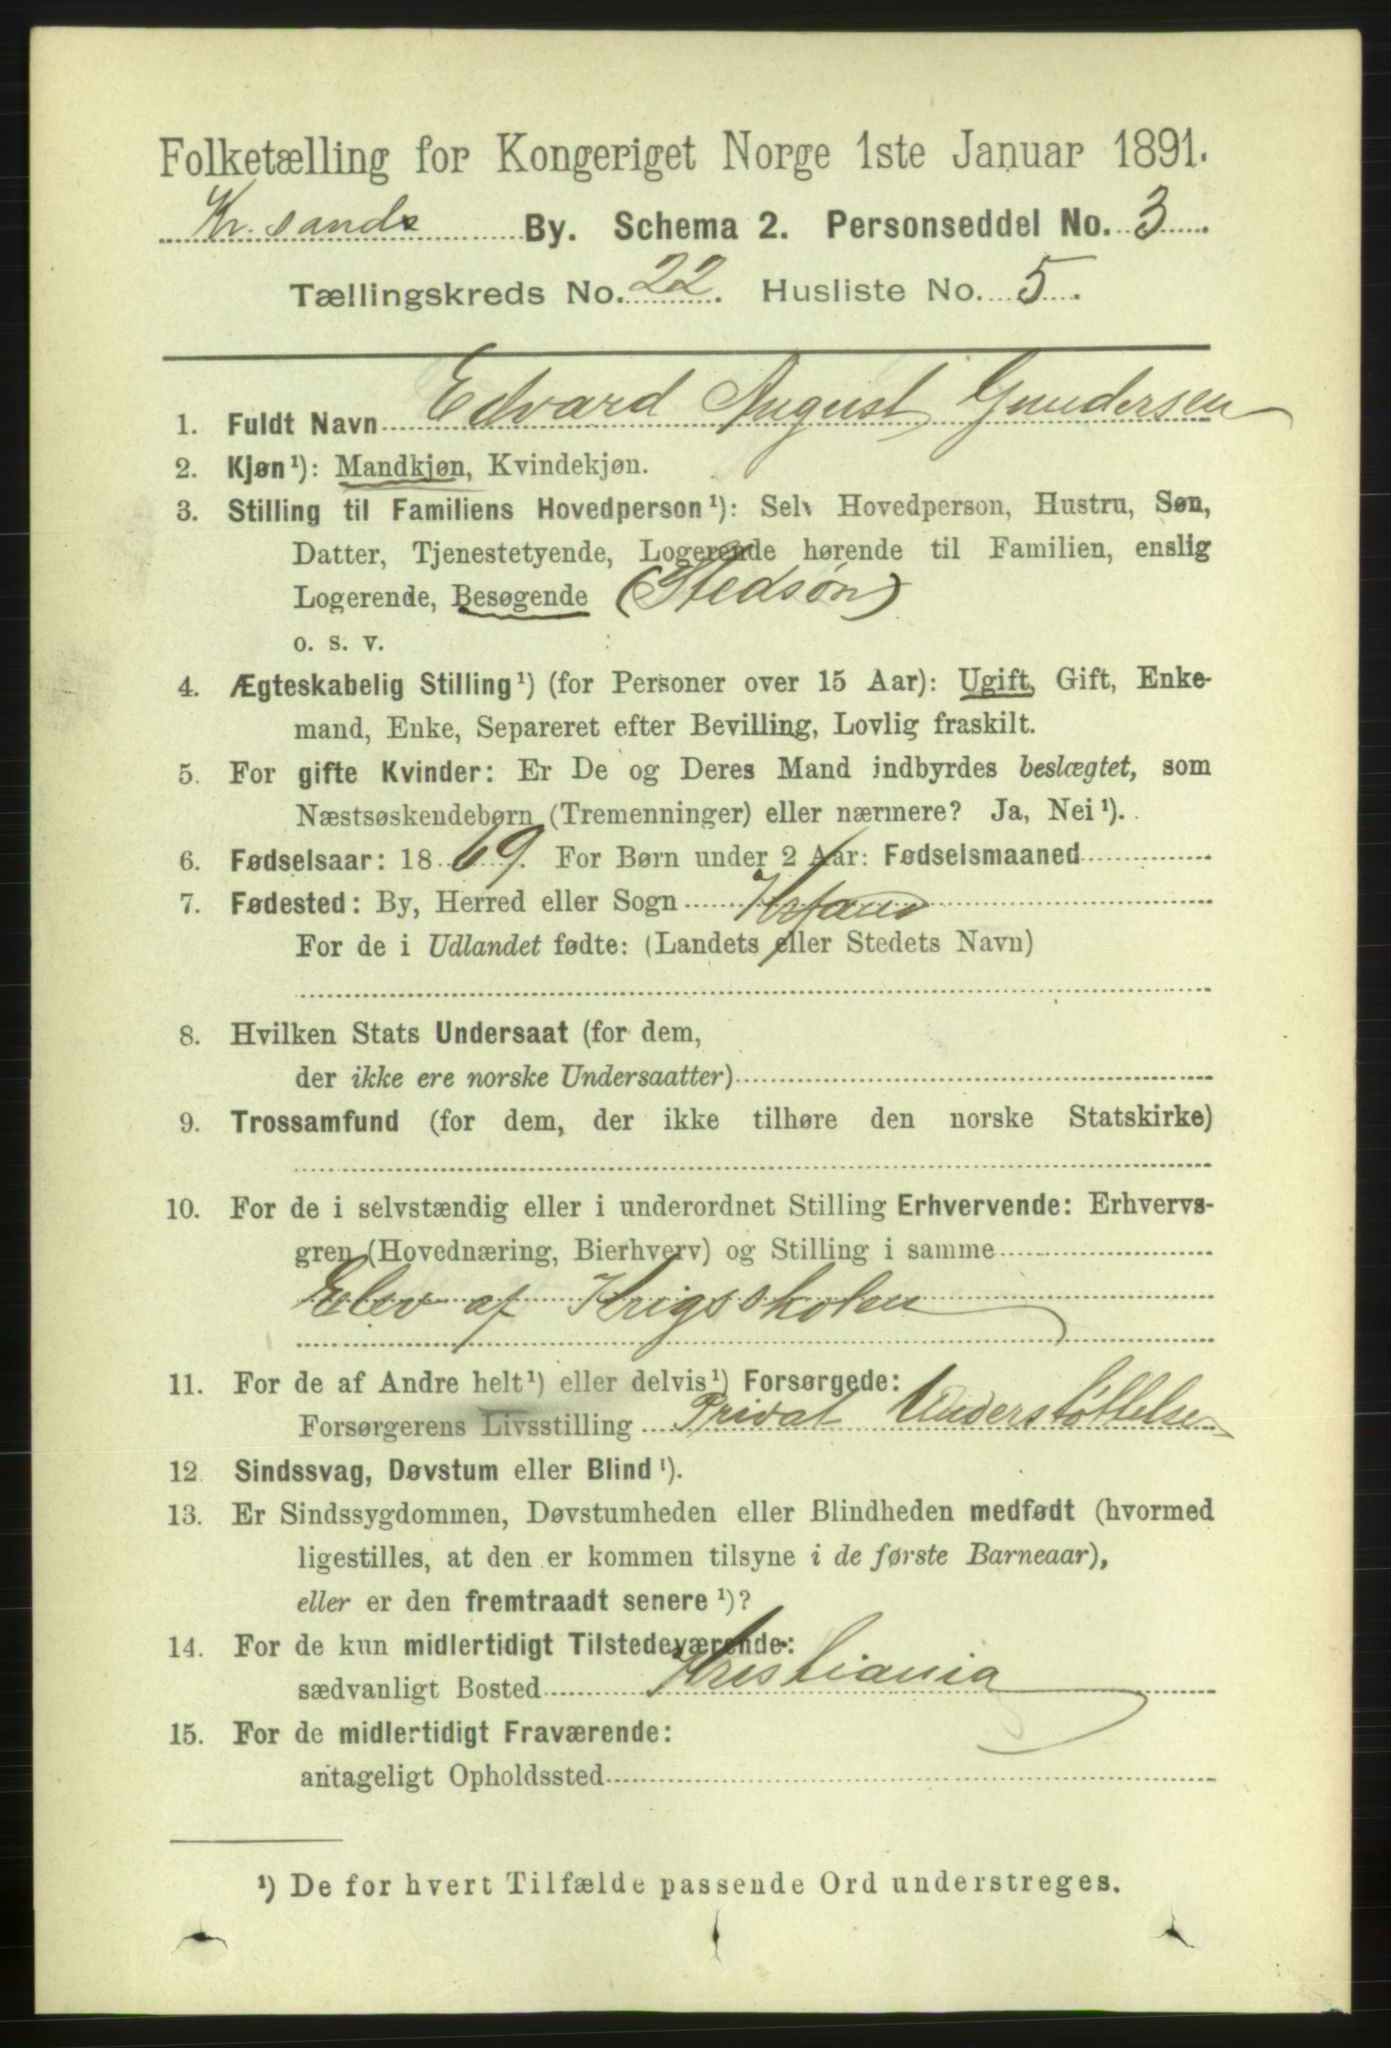 Folketælling for Kongeriget Norge 1ste Januar 1891.
Kr.sands By. Schema 2. Personseddel No. 3.
Tællingskreds No. 22. Husliste No. 5.
1. Fuldt Navn Edvard August Gundersen
2. Kjøn¹): Mandkjøn, Kvindekjøn.
3. Stilling til Familiens Hovedperson¹): Selv Hovedperson, Hustru, Søn,
Datter, Tjenestetyende, Logerende hørende til Familien, enslig
Logerende, Besøgende (Stedsøn)
o. s. v.
4. Ægteskabelig Stilling¹) (for Personer over 15 Aar): Ugift, Gift, Enke-
mand, Enke, Separeret efter Bevilling, Lovlig fraskilt.
5. For gifte Kvinder: Er De og Deres Mand indbyrdes beslægtet, som
Næstsøskendebørn (Tremenninger) eller nærmere? Ja, Nei¹).
6. Fødselsaar: 1869. For Børn under 2 Aar: Fødselsmaaned
7. Fødested: By, Herred eller Sogn Krsand
For de i Udlandet fødte: (Landets eller Stedets Navn)
8. Hvilken Stats Undersaat (for dem,
der ikke ere norske Undersaatter)
9. Trossamfund (for dem, der ikke tilhøre den norske Statskirke)
10. For de i selvstændig eller i underordnet Stilling Erhvervende: Erhvervs-
gren (Hovednæring, Bierhverv) og Stilling i samme
Elev af Krigsskolen
11. For de af Andre helt¹) eller delvis¹) Forsørgede:
Forsørgerens Livsstilling Privat Understøttelse
12 Sindssvag, Døvstum eller Blind¹).
13. Er Sindssygdommen, Døvstumheden eller Blindheden medfødt (hvormed
ligestilles, at den er kommen tilsyne i de første Barneaar),
eller er den fremtraadt senere¹)?
14. For de kun midlertidigt Tilstedeværende:
sædvanligt Bosted Kristiania
15. For de midlertidigt Fraværende:
antageligt Opholdssted
¹) De for hvert Tilfælde passende Ord understreges.